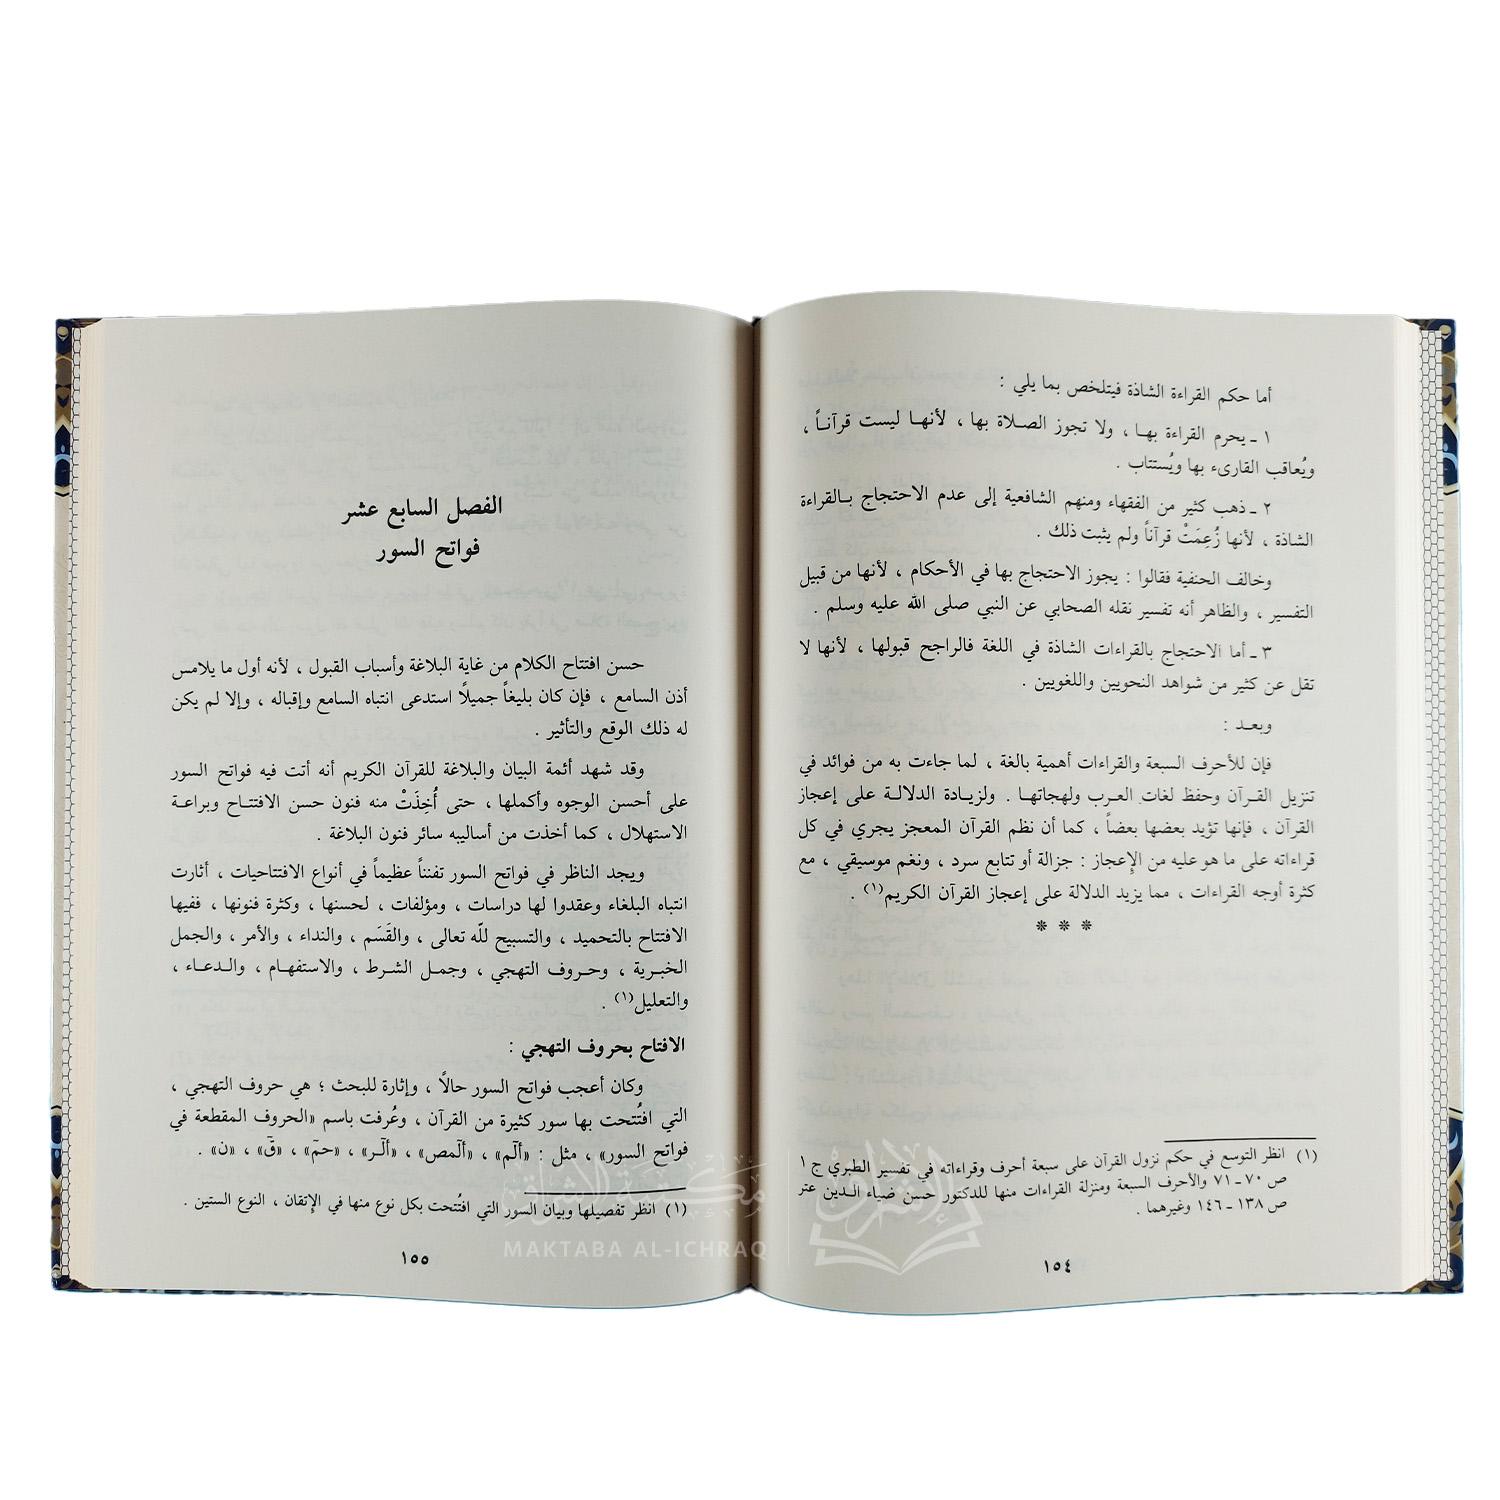 أما حكم القراءة الشاذة فيتلخص بما يلي :
١ ـ يحرم القراءة بهـا ، ولا تجوز الصـلاة بها ، لأنهـا ليست قرآنـاً ،
ويُعاقب القارىء بها ويُستتاب .
٢ ـ ذهب كثير من الفقهاء ومنهم الشافعية إلى عدم الاحتجاج بـالقراءة
الشاذة ، لأنها زُعِمَتْ قرآناً ولم يثبت ذلك .
وخالف الحنفية فقالوا : يجوز الاحتجاج بها في الأحكام ، لأنها من قبيل
التفسير ، والظاهر أنه تفسير نقله الصحابي عن النبي صلى الله عليه وسلم .
٣ ـ أما الاحتجاج بالقراءات الشاذة في اللغة فالراجح قبولها ، لأنها لا
تقل عن كثير من شواهد النحويين واللغويين .
وبعـد :
فإن للأحرف السبعة والقراءات أهمية بالغة ، لما جاءت به من فوائد في
تنزيل القـرآن وحفظ لغات العـرب ولهجاتهـا . ولزيـادة الدلالـة على إعجاز
القرآن ، فإنها تؤيد بعضها بعضاً ، كما أن نظم القرآن المعجز يجري في كل
قراءاته على ما هو عليه من الإعجاز : جزالة أو تتابع سرد ، ونغم موسيقي ، مع
كثرة أوجه القراءات ، مما يزيد الدلالة على إعجاز القرآن الكريم(١) .
* * *
(١) انظر التوسع في حكم نزول القرآن على سبعة أحرف وقراءاته في تفسير الطبري ج ١
ص ٧٠ ـ ٧١ والأحرف السبعة ومنزلة القراءات منها للدكتور حسن ضياء الـدين عتر
ص ١٣٨ ـ ١٤٦ وغيرهما .
١٥٤
الفصل السابع عشر
فواتح السور
حسن افتتاح الكلام من غاية البلاغة وأسباب القبول ، لأنه أول ما يلامس
أذن السامع ، فإن كان بليغاً جميلًا استدعى انتباه السامع وإقباله ، وإلا لم يكن
له ذلك الوقع والتأثير .
وقد شهد أئمة البيان والبلاغة للقرآن الكريم أنه أتت فيه فواتح السور
على أحسن الوجوه وأكملها ، حتى أُخِذَتْ منه فنون حسن الافتتـاح وبراعـة
الاستهلال ، كما أخذت من أساليبه سائر فنون البلاغة .
ويجد الناظر في فواتح السور تفنناً عظيماً في أنواع الافتتاحيات ، أثارت
انتباه البلغاء وعقدوا لها دراسات ، ومؤلفات ، لحسنها ، وكثرة فنونها ، ففيها
الافتتاح بالتحميد ، والتسبيح للّه تعالى ، والقَسَم ، والنداء ، والأمر ، والجمل
الخبـرية ، وحـروف التهجي ، وجمـل الشـرط ، والاستفهـام ، والـدعـاء ،
والتعليل(١) .
الافتاح بحروف التهجي :
وكان أعجب فواتح السور حالًا ، وإثارة للبحث ؛ هي حروف التهجي ،
التي افتُتحت بها سور كثيرة من القرآن ، وعُرفت باسم «الحروف المقطعة في
فواتح السور» ، مثل : «ألٓم» ، «ألٓمص» ، «ألٓـر» ، «حمٓ» ، «قٓ» ، «ن» .
(١) انظر تفصيلها وبيان السور التي افتُتحت بكل نوع منها في الإتقان ، النوع الستين .
١٥٥
مكتبة الإشراق
MAKTABA AL-ICHRAQ
الإشراق